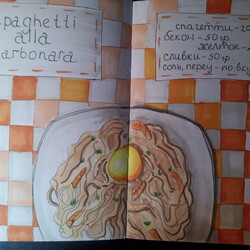 spaghetti
alla
carbonara
спагетти - 20
бекон - 50 гр.
желток -
сливки - 50 гр.
соль, перец - по вк